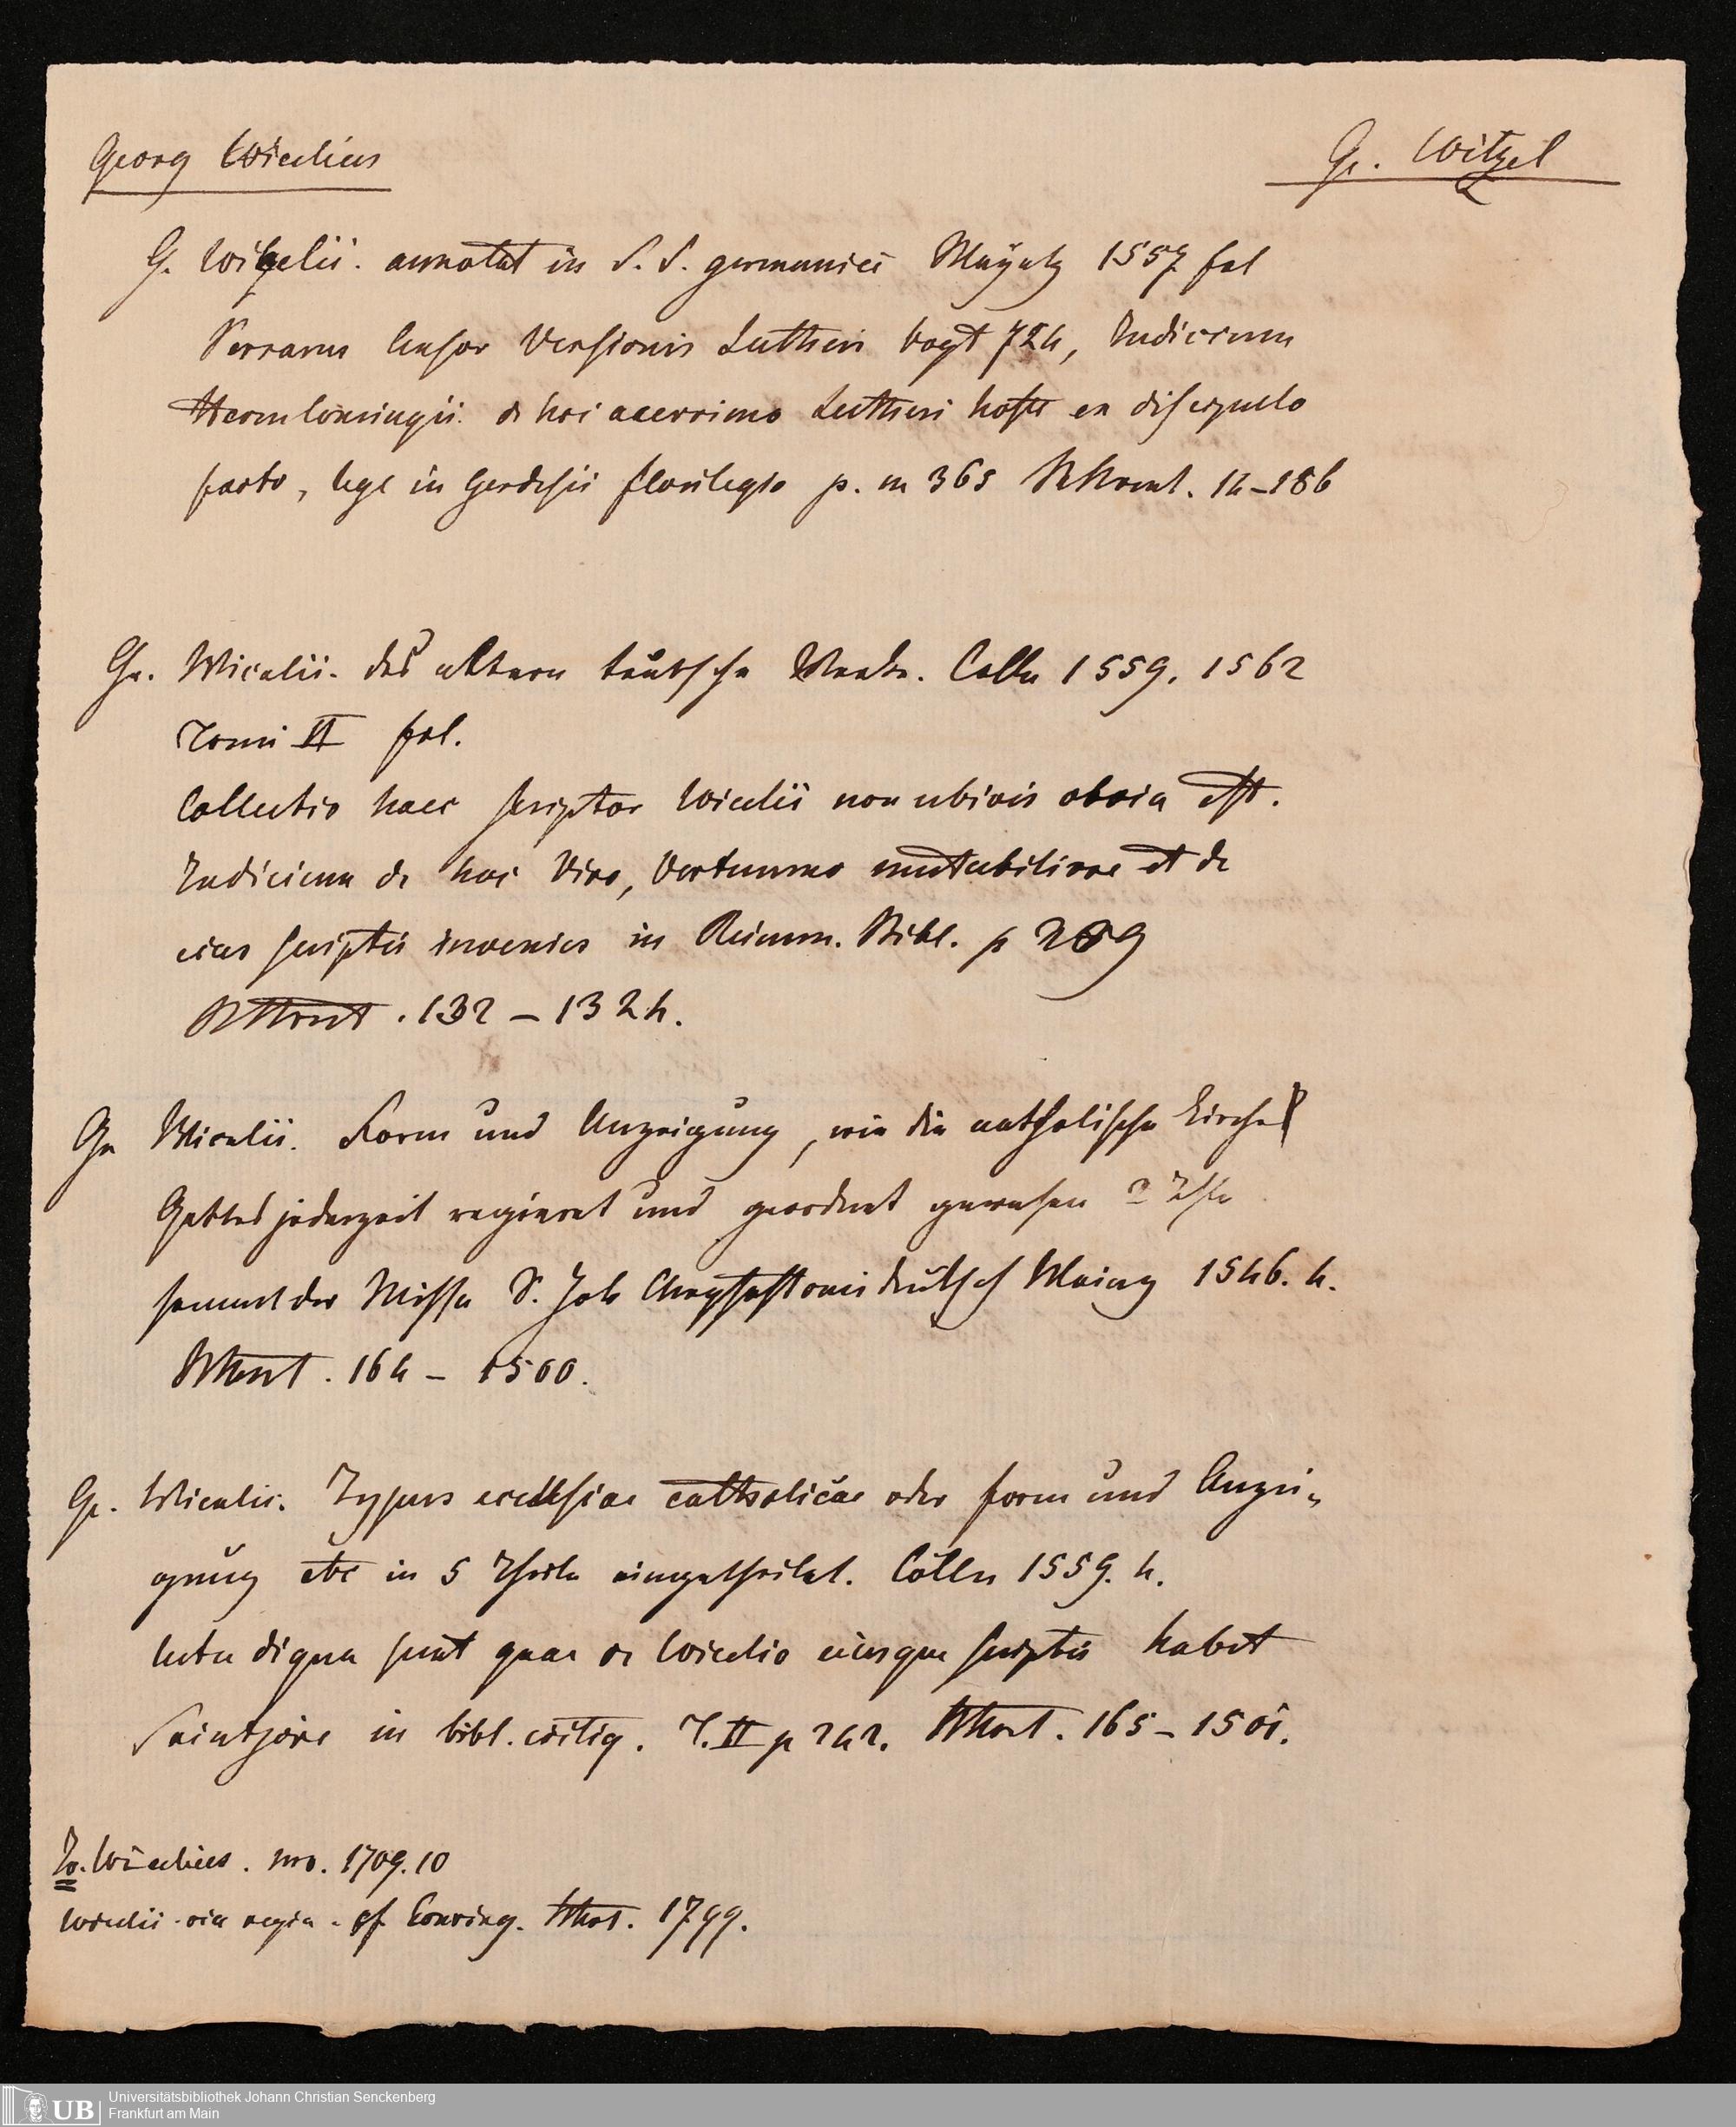 Georg Wicelius
Ge. Witzel
G. Wicelii. annotat in S. S. germanice Mayntz 1557 fol
Serrarius censor Versionis Lutheri Vogt 724, Judicium
de hoc acerrimo Lutheri hoste ex discipulo
facto, lege in Gerdesii florilegio p. m 365 14-186
Ge. Wicelii. des ältern teutsche Werke. Cölln 1559. 1562
Tomi II fol.
Collectio haec scriptor Wicelii non ubivis obvia est.
Judicium de hoc Viro, Vertumno mutabiliore et de
eius scriptis invenies in Reimm. Bibl. p 209
132 – 1324.
Ge Wicelii. Form und Anzeigung, wie die catholische Kirche
Gottes jederzeit regieret und geordnet gewesen 2 Thle
sammt der Missa S. Joh Chrysostomi deutsch Mainz 1546. 4.
164 – 1500.
Ge. Wicelii. Typus ecclesiae catholicae oder form und Anzei-
gung etc in 5 Theile eingetheilet. Cölln 1559. 4.
lectu digna sunt quae de Wicelio eiusque scriptis habet
Saintjore in bibl. critiq. T. II p 242. 165 – 1501.
Wicelius. nro. 1709.10
Wicelii via regia. ef Conring. 1799.
Universitätsbibliothek Johann Christian Senckenberg
UB Frankfurt am Main